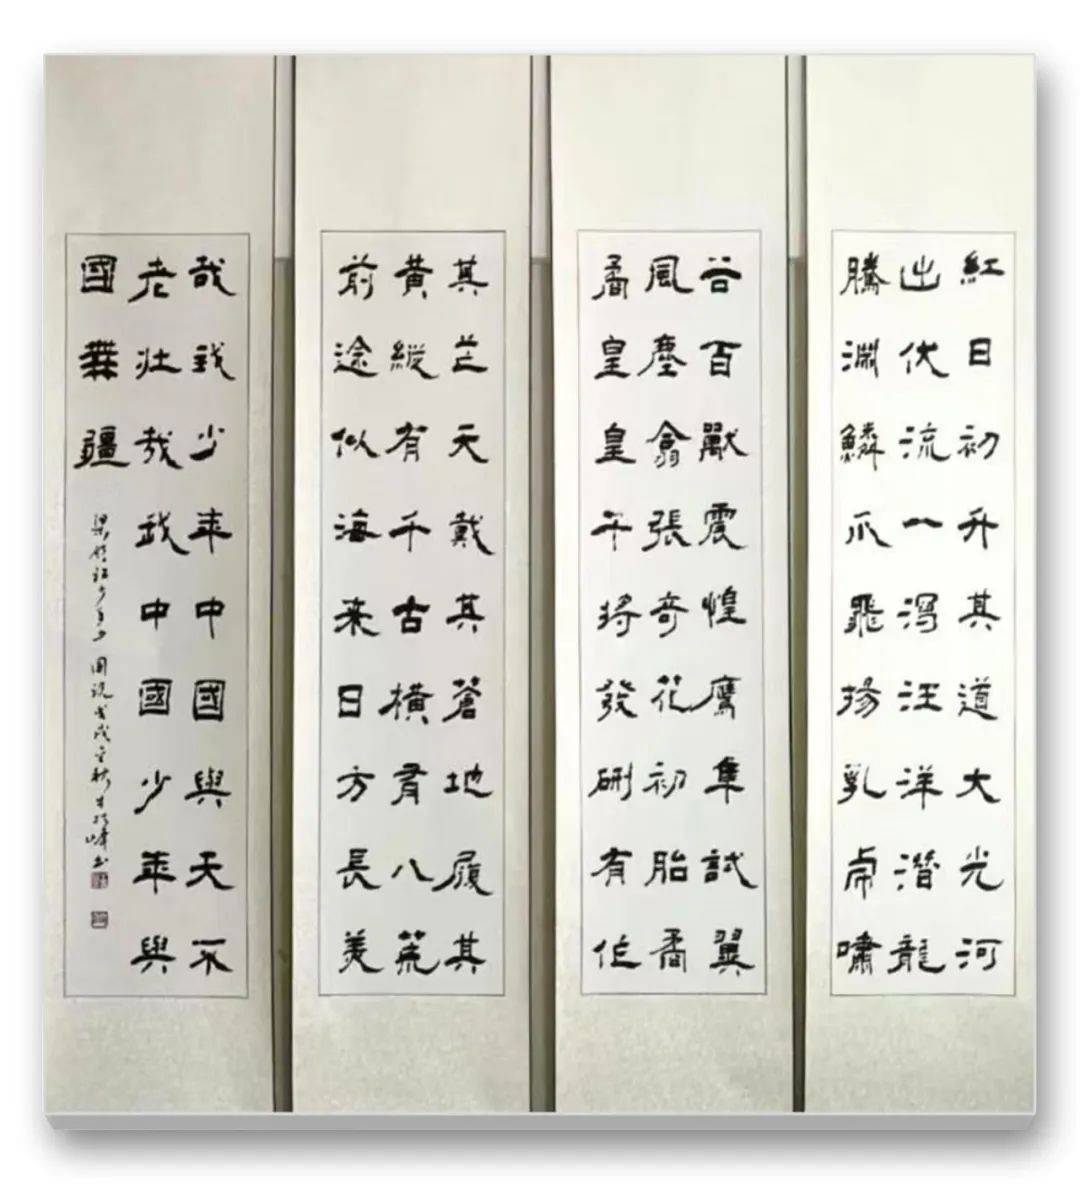 紅日初升其道大光河
出伏流一瀉汪洋潛龍
騰淵鱗爪飛揚乳虎嘯
谷百獸震惶鷹隼試翼
風塵翕張奇花初胎矞
矞皇皇干將發硎有作
其芒天戴其蒼地履其
黃縱有千古橫有八荒
前途似海來日方長美
哉我少年中國與天不
老壯哉我中國少年與
國無疆
梁啓超少年中国説戊戌金秋峰書